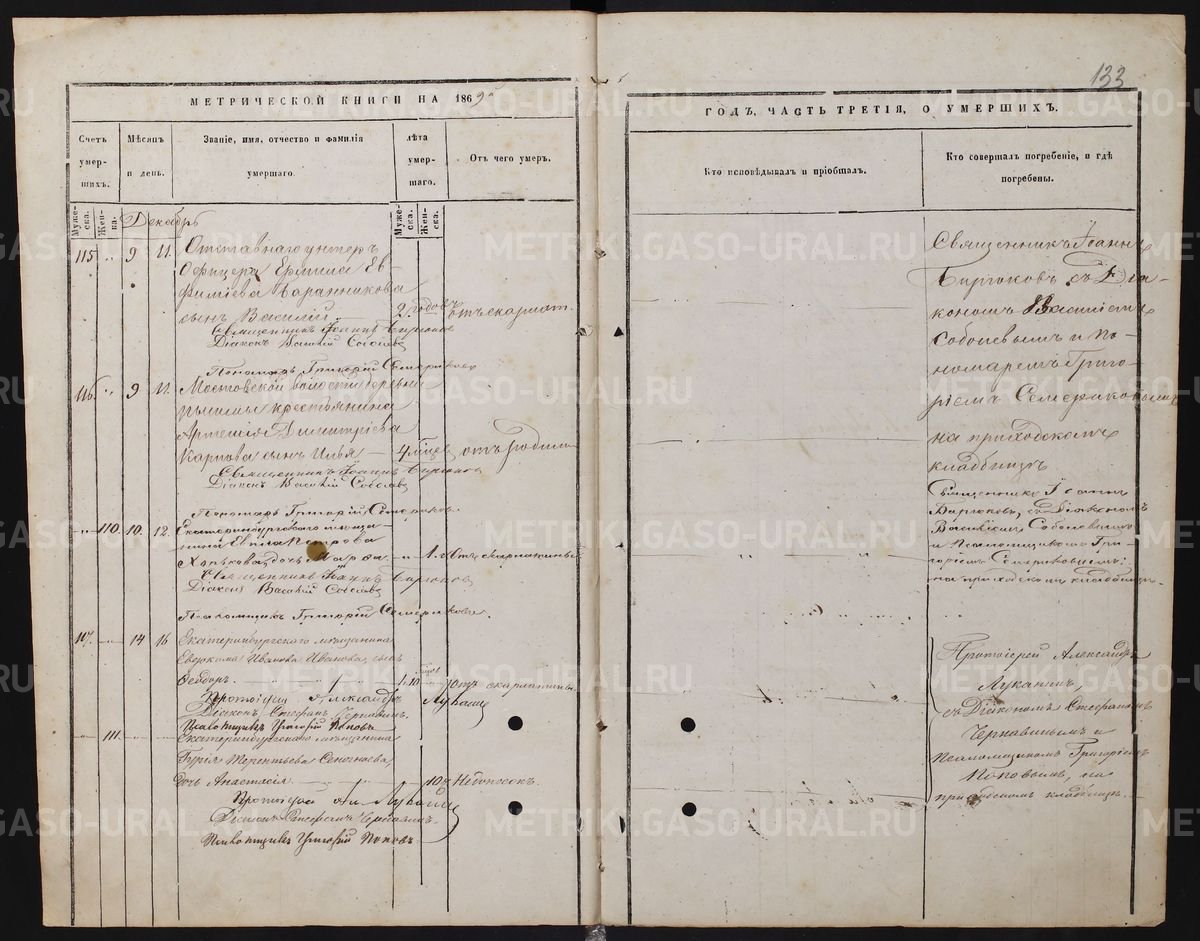 133
МЕТРИЧЕСКОЙ КНИГИ НА 1869й
ГОДЪ, ЧАСТЬ ТРЕТІЯ, О УМЕРШИХЪ.
Счетъ умер-шихъ.
Мѣсяцъ и день.
Званіе, имя, отчество и фамилія умершаго.
лѣта умер-шаго.
Отъ чего умеръ.
Кто исповѣдывалъ и пріобщалъ.
Кто совершалъ погребеніе, и гдѣ погребены.
Муже-ска.
Жен-ска.
Муже-ска.
Жен-ска.
Декабрь
115 " 9 11. Отставнаго унтеръ
Офицера Ермила Ев-
фиміева Баранникова
сынъ Василій. 2 годовъ отъ скарлат.
Священникъ Іоаннъ Бирюковъ
Діаконъ Василій Соболевъ
Пономарь Григорій Семериковъ
116. " 9 11. Мостовской волости деревни
Пышмы крестьянина
Артемія Димитріева
Карпова сынъ Илья 4 мѣсяц. отъ родим.
Священникъ Іоаннъ Бирюковъ
Діаконъ Василій Соболевъ
Пономарь Григорій Семериковъ
110. 10. 12. Екатеринбургскаго мѣща-
нина Петрова
дочь Марѳа 1. Отъ скарлатины
Священникъ Іоаннъ Бирюковъ
Діаконъ Василій Соболевъ
Псаломщикъ Григорій Семериковъ.
117. 14 16 Екатеринбургскаго мѣщанина
Евдокима Иванова Иванова, сынъ
Ѳедоръ. 1. 10 Отъ скарлатины
Протоіерей Александръ Луканинъ
Діаконъ Стефанъ Чернавинъ.
Псаломщикъ Григорій Поповъ
111. Екатеринбургскаго мѣщанина
Гурія Терентьева
дочь Анастасія 10 Недоносокъ.
Протоіерей Ал. Луканинъ
Діаконъ Стефанъ Чернавинъ.
Псаломщикъ Григорій Поповъ
Священникъ Іоаннъ
Бирюковъ съ Діа-
кономъ Василіемъ
Соболевымъ и По-
номаремъ Григо-
ріемъ Семериковымъ
на приходскомъ
кладбищѣ
Священникъ Іоаннъ
Бирюковъ, съ Діакономъ
Василіемъ Соболевымъ
и Псаломщикомъ Гри-
горіемъ Семериковымъ:
на приходскомъ кладбищѣ.
Протоіерей Александръ
Луканинъ,
съ Діакономъ Стефаномъ
Чернавинымъ и
Псаломщикомъ Григоріемъ
Поповымъ, на
приходскомъ кладбищѣ.
METRIKI.GASO-URAL.RU